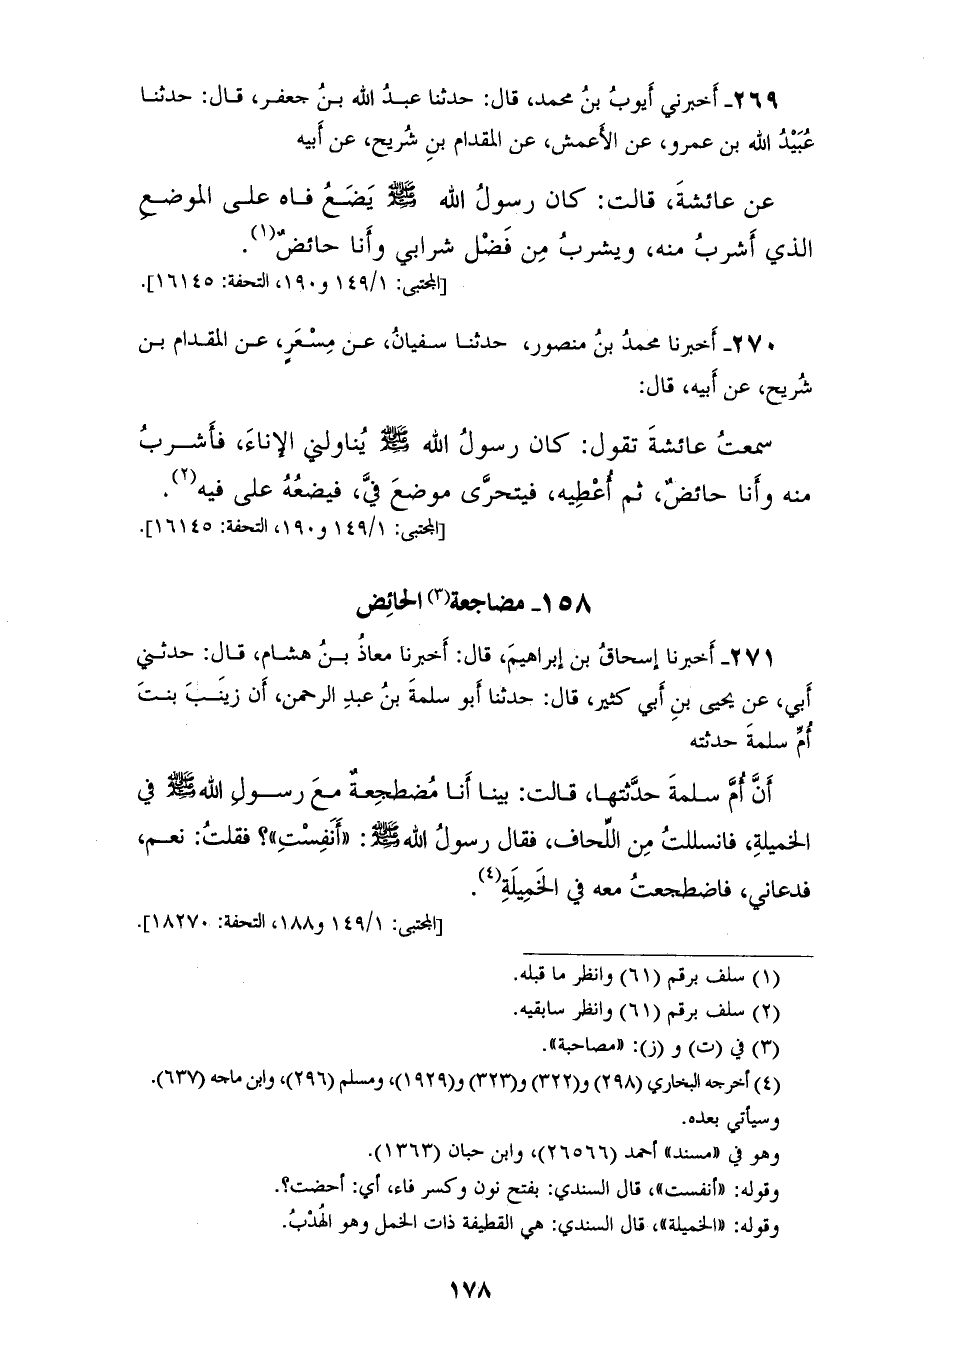 ٢٦٩ـ أَخبرني أَيوبُ بنُ محمد، قال: حدثنا عبدُ الله بنُ جعفر، قال: حدثنا
عُبَيْدُ الله بن عمرو، عن الأَعمش، عن المقدام بنِ شُريح، عن أَبيه
عن عائشةَ، قالت: كان رسولُ الله ﷺ يَضَعُ فاه على الموضعِ
الذي أَشربُ منه، ويشربُ مِن فَضْل شرابي وأَنا حائضٌ(١).
[المجتبى: ١٤٩/١ و١٩٠، التحفة: ١٦١٤٥].
٢٧٠ـ أَخبرنا محمدُ بنُ منصور، حدثنا سفيانُ، عن مِسْعَرٍ، عن المقدام بن
شُريح، عن أَبيه، قال:
سمعتُ عائشةَ تقول: كان رسولُ الله ﷺ يُناولني الإناءَ، فأَشربُ
منه وأَنا حائضٌ، ثم أُعْطِيه، فيتحرَّى موضعَ فيَّ، فيضعُهُ على فيه(٢).
[المجتبى: ١٤٩/١ و١٩٠، التحفة: ١٦١٤٥].
١٥٨ـ مضاجعة(٣) الحائِض
٢٧١ـ أَخبرنا إسحاقُ بن إبراهيمَ، قال: أَخبرنا معاذُ بنُ هشام، قال: حدثني
أَبي، عن يحيى بنِ أَبي كثير، قال: حدثنا أَبو سلمةَ بنُ عبدِ الرحمن، أَن زينَبَ بنتَ
أُمِّ سلمةَ حدثته
أَنَّ أُمَّ سلمةَ حدَّثتها، قالت: بينا أَنا مُضطجِعةٌ معَ رسولِ اللهﷺ في
الخميلةِ، فانسللتُ مِن اللِّحاف، فقال رسولُ اللهﷺ: «أَنَفِسْتِ»؟ فقلتُ: نعم،
فدعاني، فاضطجعتُ معه في الخَمِيلَةِ(٤).
[المجتبى: ١٤٩/١ و١٨٨، التحفة: ١٨٢٧٠].
(١) سلف برقم (٦١) وانظر ما قبله.
(٢) سلف برقم (٦١) وانظر سابقيه.
(٣) في (ت) و (ز): «مصاحبة».
(٤) أخرجه البخاري (٢٩٨) و(٣٢٢) و(٣٢٣) و(١٩٢٩)، ومسلم (٢٩٦)، وابن ماجه (٦٣٧).
وسيأتي بعده.
وهو في «مسند» أحمد (٢٦٥٦٦)، وابن حبان (١٣٦٣).
وقوله: «أنفست»، قال السندي: بفتح نون وكسر فاء، أي: أحضت؟.
وقوله: «الخميلة»، قال السندي: هي القطيفة ذات الخمل وهو الهُدْبُ.
١٧٨